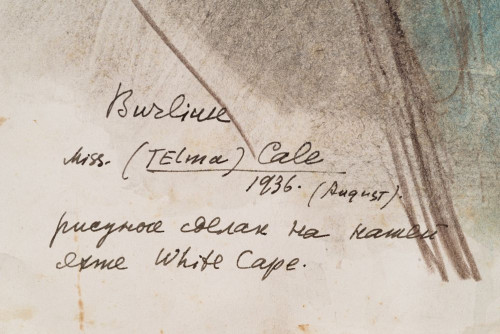 Burliuk
Miss. (TElma) Cale
1936. (August).
рисунок сделан на нашей
яхте White Cape.